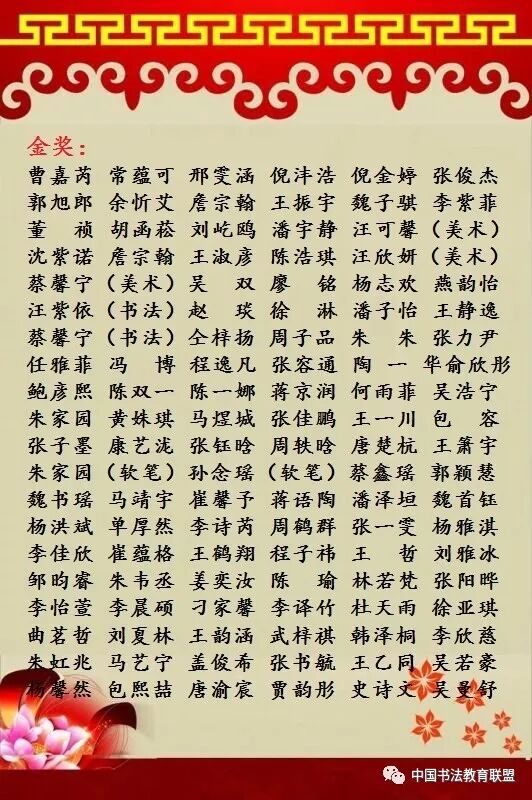 金奖：
曹嘉芮 常蕴可 邢雯涵 倪沣浩 倪金婷 张俊杰
郭旭郎 余忻艾 詹宗翰 王振宇 魏子骐 李紫菲
董 祯 胡函菘 刘屹鸥 潘宇静 汪可馨（美术）
沈紫诺 詹宗翰 王淑彦 陈浩琪 汪欣妍（美术）
蔡馨宁（美术）吴 双 廖 铭 杨志欢 燕韵怡
汪紫依（书法）赵 琰 徐 淋 潘子怡 王静逸
蔡馨宁（书法）仝梓扬 周子品 朱 朱 张力尹
任雅菲 冯 博 程逸凡 张容通 陶 一 华俞欣彤
鲍彦熙 陈双一 陈一娜 蒋京润 何雨菲 吴浩宁
朱家园 黄姝琪 马煜城 张佳鹏 王一川 包 容
张子墨 康艺泷 张钰晗 周轶晗 唐楚杭 王箫宇
朱家园（软笔）孙念瑶（软笔）蔡鑫瑶 郭颖慧
魏书瑶 马靖宇 崔馨予 蒋语陶 潘泽垣 魏首钰
杨洪斌 单厚然 李诗芮 周鹤群 张一雯 杨雅淇
李佳欣 崔蕴格 王鹤翔 程子祎 王 哲 刘雅冰
邹昀睿 朱韦丞 姜奕汝 陈 瑜 林若梵 张阳晔
李怡萱 李晨硕 刁家馨 李译竹 杜天雨 徐亚琪
曲茗哲 刘夏林 王韵涵 武梓祺 韩泽桐 李欣慈
朱虹兆 马艺宁 盖俊希 张书毓 王乙同 吴若豪
杨馨然 包熙喆 唐渝宸 贾韵彤 史诗文 吴曼舒
中国书法教育联盟